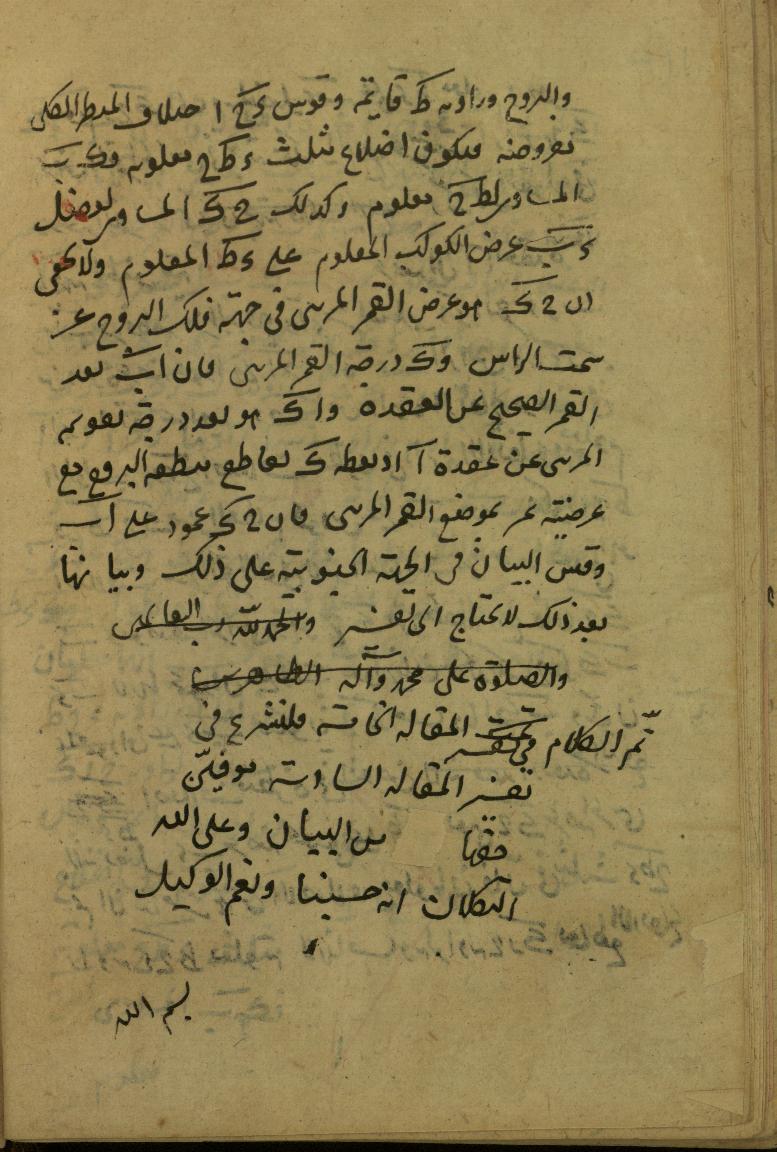 والبروج وزاوية ط قايمة وقوس ءح ا ختلاف المنظر الكلى
مفروضه فيكون اضلاع مثلث ء ط ح معلومه
المساوى لط ح معلوم وكذلك ح ك المساوى لفضل
عرض الكوكب المعلوم على ء ط المعلوم ولا يخفى
ان ح ك هو عرض القمر المرىى فى جهة فلك البروج عن
سمت الراس وك درجة القمر المرىى فان اب بعد
القمر الصحيح عن العقدة واك هو بعد درجة تقويم
المرىى عن عقدة آ اذ نقطه ك تقاطع منطقة البروج مع
عرضيته تمر بموضع القمر المرىى فان ح ك عمود على اك
وقس البيان فى الجهة الجنوبية على ذلك وبيانها
بعد ذلك لا يحتاج الى تفسير والحمد لله رب العالمين
والصلوة على محمد وآله الطاهرين
تم الكلام فى تفسير المقاله الخامسه فلنشرع فى
تفسير المقاله السادسه موفين
حقها من البيان وعلى الله
التكلان انه حسبنا ونعم الوكيل
بسم الله